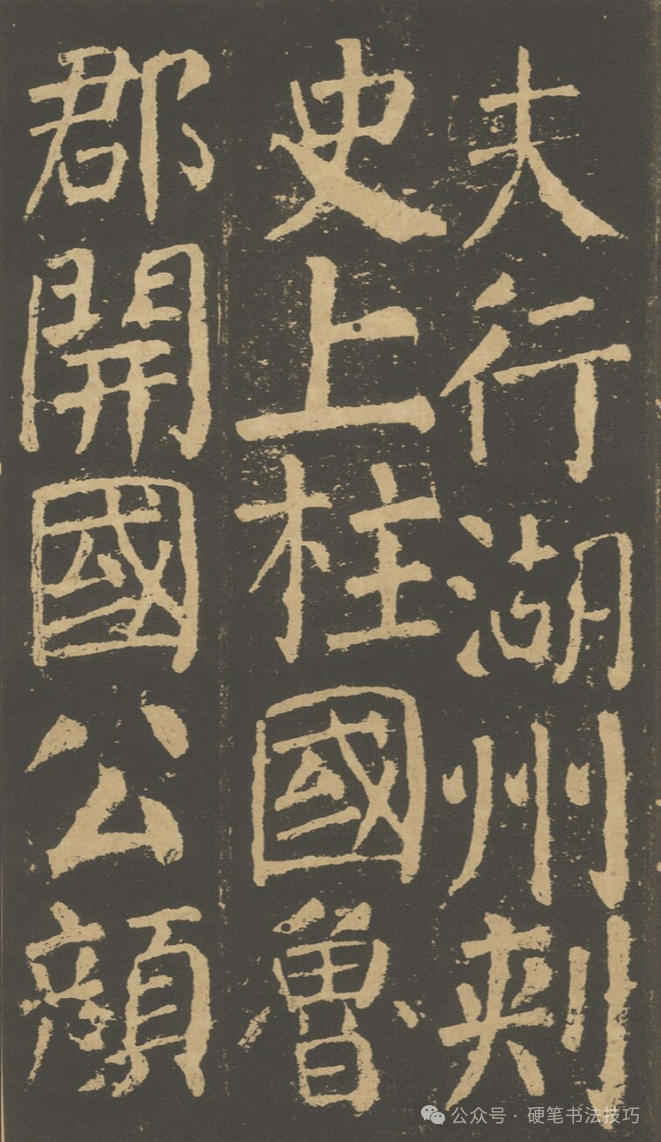 大行湖州刺
史上柱國魯
郡開國公顔
公众号·硬笔书法技巧